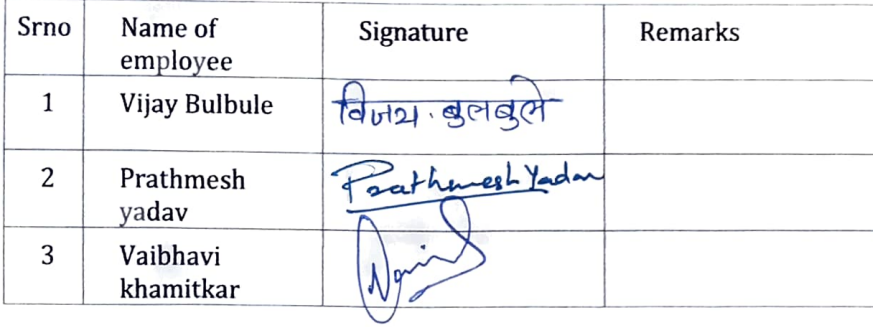 Srno Name of employee Signature Remarks
1 Vijay Bulbule विजय. बुलबुले
2 Prathmesh yadav Prathmesh Yadav
3 Vaibhavi khamitkar